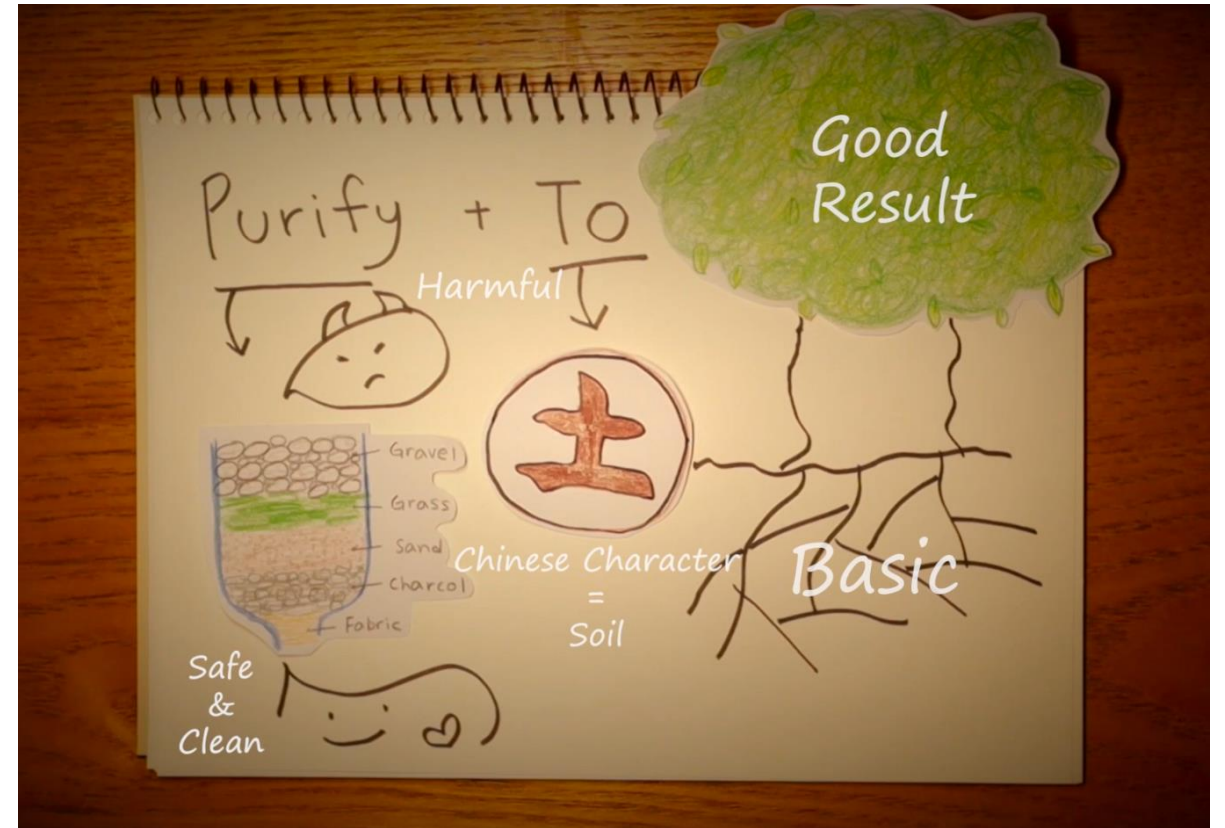 Purify + To
Good
Result
Harmful
土
Gravel
Grass
Sand
Charcol
Fabric
Chinese Character
=
Soil
Basic
Safe
&
Clean